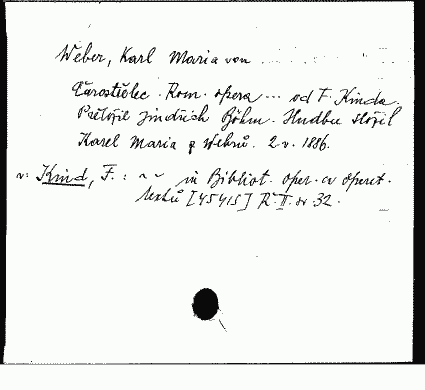 Weber, Karl Maria von
Čarostřelec. Rom. opera ... od F. Kinda.
Přeložil Jindřich Böhm. Hudbu složil
Karel Maria z Webrů. 2. v. 1886.
v: Kind, F.: ~ ~ in Bibliot. oper. a operet.
textů [45415] R. II. sv. 32.